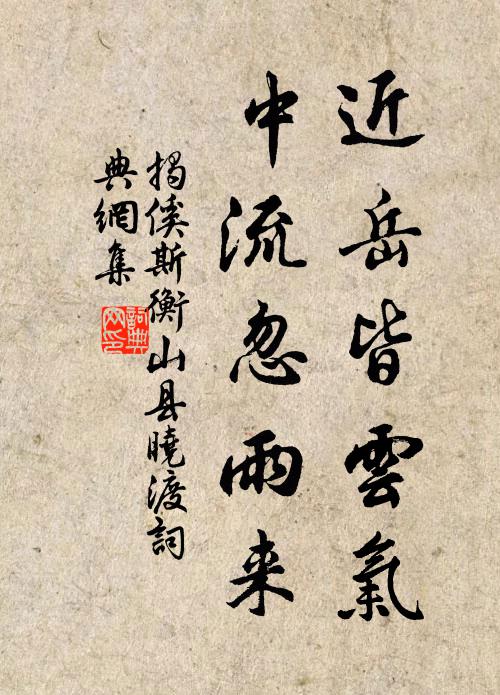 近岳皆雲氣
中流忽雨来
揭傒斯衡山县曉渡詞
典網集
詞典
网印